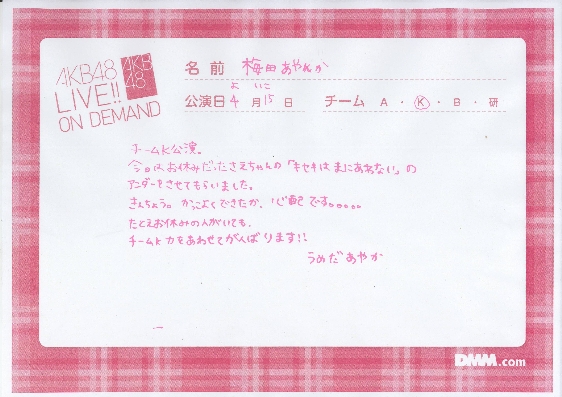 AKB48
LIVE!!
ON DEMAND
AKB
48
名前 梅田あやんか
よ いこ
公演日 4月 15日 チーム A・K・B・研
チームK公演。
今日はお休みだったさえちゃんの「キセキはまにあわない」の
アンダーをさせてもらいました。
きんちょう。かっこよくできたか、心配です。。。。。
たとえお休みの人がいても、
チームK力をあわせてがんばります!!
うめだあやか
DMM.com